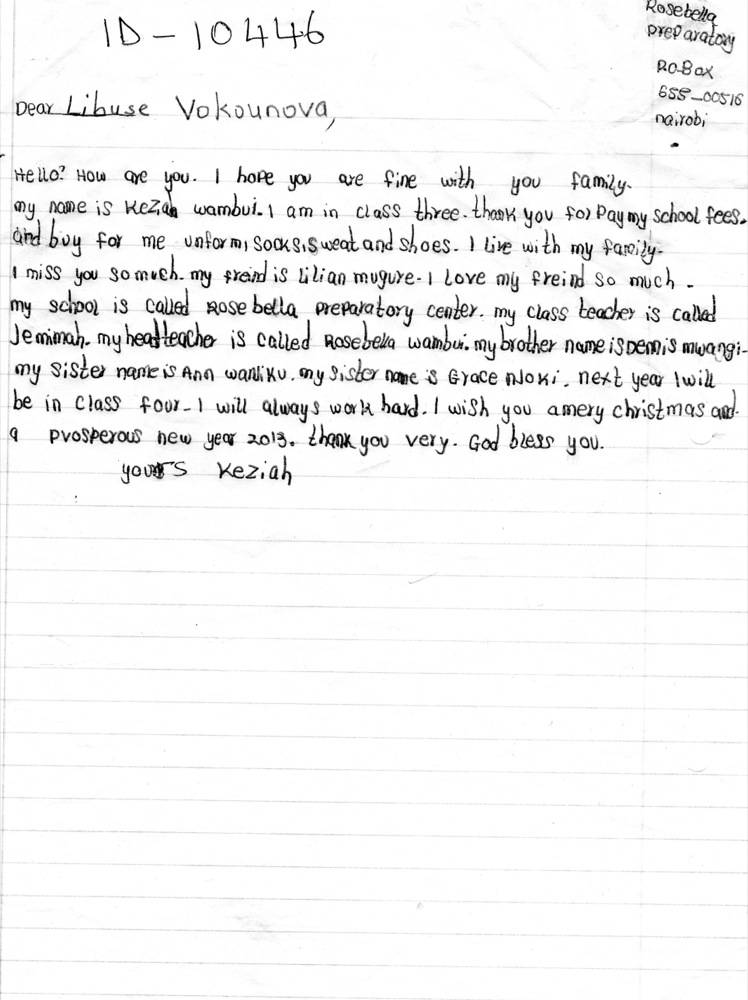 ID-10446
Rosebella
preparatory
P.O-Box
658-00516
nairobi
Dear Libuse Vokounova,
Hello? How are you. I hope you are fine with you family.
my name is Keziah wambui. I am in class three. thank you for Pay my school fees.
and buy for me unform, socks, sweat and shoes. I live with my family.
I miss you so much. my freind is Lilian mugure. I Love my freind so much.
my school is called Rosebella preparatory center. my class teacher is called
Jemimah. my headteacher is called Rosebella wambui. my brother name is Dennis mwangi.
my sister name is Ann wanjiku. my sister name is Grace Njoki. next year I will
be in class four. I will always work hard. I wish you amery christmas and
a prosperous new year 2013. thank you very. God bless you.
yours Keziah